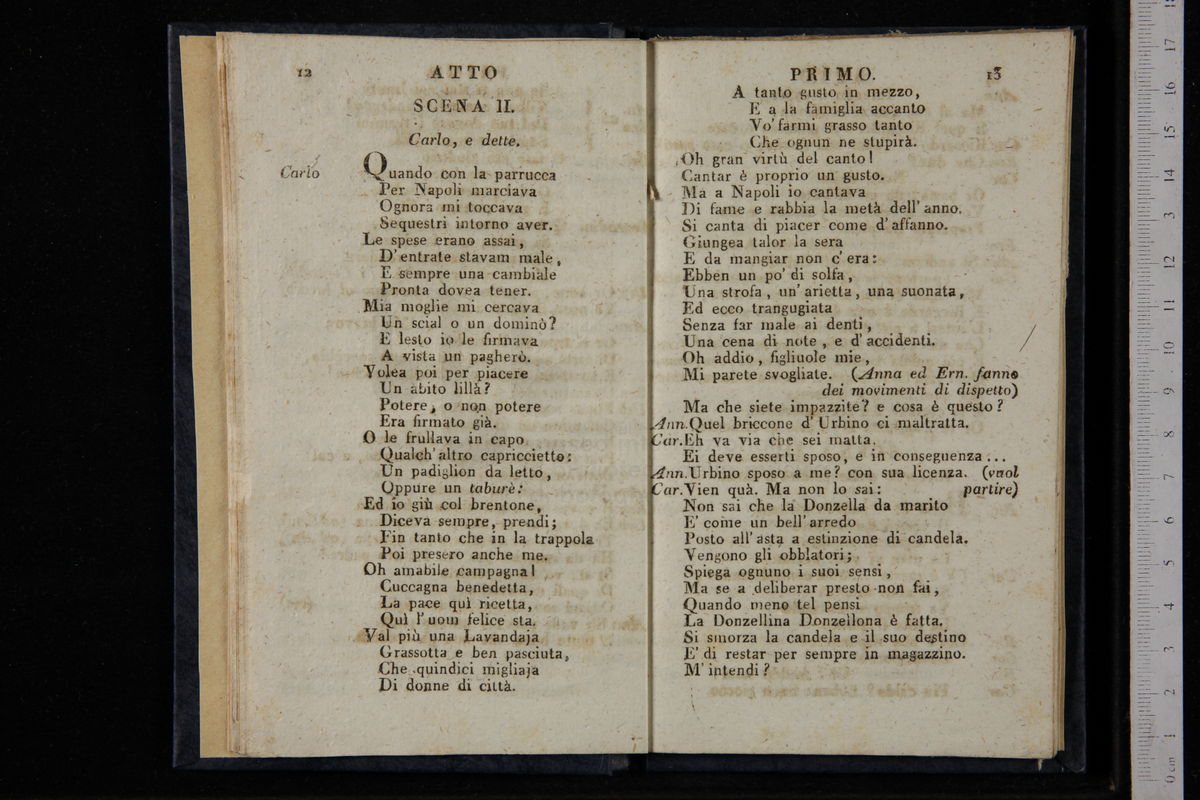 12 ATTO
SCENA II.
Carlo, e dette.
Carlo Quando con la parrucca
Per Napoli marciava
Ognora mi toccava
Sequestri intorno aver.
Le spese erano assai,
D'entrate stavam male,
E sempre una cambiale
Pronta dovea tener.
Mia moglie mi cercava
Un scial o un dominò?
E lesto io le firmava
A vista un pagherò.
Volea poi per piacere
Un abito lillà?
Potere, o non potere
Era firmato già.
O le frullava in capo
Qualch'altro capriccietto:
Un padiglion da letto,
Oppure un taburè:
Ed io giù col brentone,
Diceva sempre, prendi;
Fin tanto che in la trappola
Poi presero anche me.
Oh amabile campagna!
Cuccagna benedetta,
La pace quì ricetta,
Quì l'uom felice sta.
Val più una Lavandaja
Grassotta e ben pasciuta,
Che quindici migliaja
Di donne di città.
PRIMO. 13
A tanto gusto in mezzo,
E a la famiglia accanto
Vo' farmi grasso tanto
Che ognun ne stupirà.
Oh gran virtù del canto!
Cantar è proprio un gusto.
Ma a Napoli io cantava
Di fame e rabbia la metà dell'anno.
Si canta di piacer come d'affanno.
Giungea talor la sera
E da mangiar non c'era:
Ebben un po' di solfa,
Una strofa, un'arietta, una suonata,
Ed ecco trangugiata
Senza far male ai denti,
Una cena di note, e d'accidenti.
Oh addio, figliuole mie,
Mi parete svogliate. (Anna ed Ern. fanno
dei movimenti di dispetto)
Ma che siete impazzite? e cosa è questo?
Ann. Quel briccone d'Urbino ci maltratta.
Car. Eh va via che sei matta.
Ei deve esserti sposo, e in conseguenza...
Ann. Urbino sposo a me? con sua licenza. (vuol
Car. Vien quà. Ma non lo sai: partire)
Non sai che la Donzella da marito
E' come un bell'arredo
Posto all'asta a estinzione di candela.
Vengono gli obblatori;
Spiega ognuno i suoi sensi,
Ma se a deliberar presto non fai,
Quando meno tel pensi
La Donzellina Donzellona è fatta.
Si smorza la candela e il suo destino
E' di restar per sempre in magazzino.
M'intendi?
0 cm 1 2 3 4 5 6 7 8 9 10 11 12 3 14 15 16 17 18